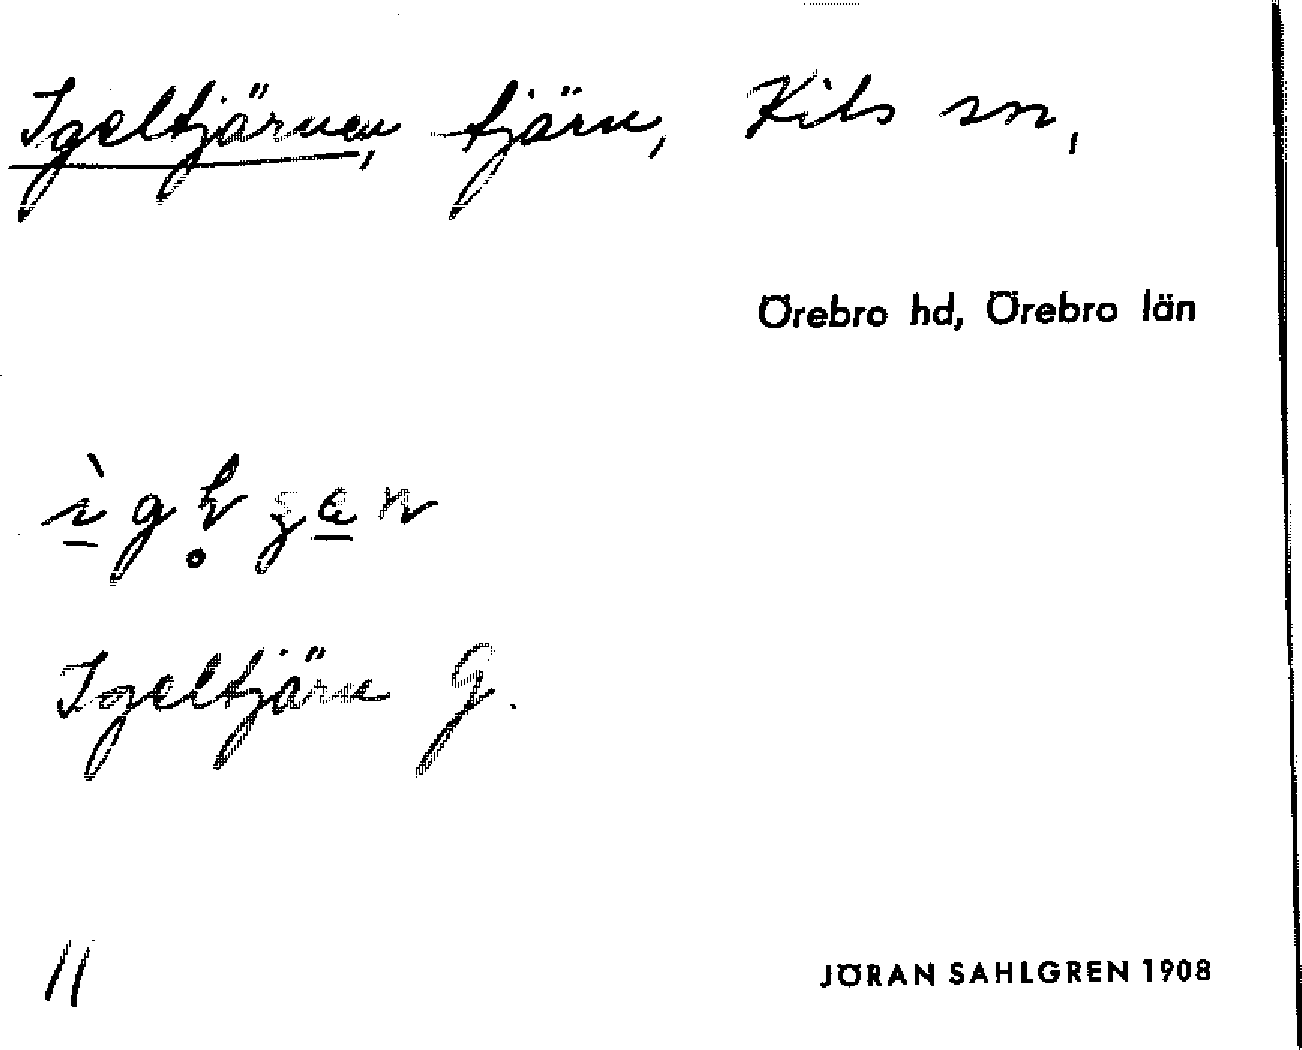 Igeltjärnen, tjärn, Kils sn,
Örebro hd, Örebro län
Igeltjärn G.
11
JÖRAN SAHLGREN 1908